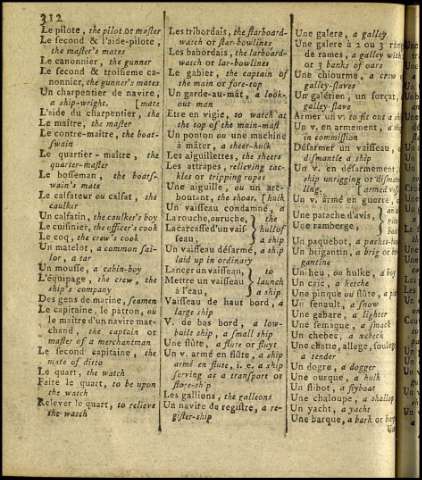 312
Le pilote, the pilot or master
Le second & l'aide-pilote,
the master's mates
Le canonnier, the gunner
Le second & troisieme ca-
nonnier, the gunner's mates
Un charpentier de navire,
a ship-wright. [mate
L'aide du charpentier, the
Le maître, the master
Le contre-maître, the boat-
swain
Le quartier-maître, the
quarter-master
Le bosseman, the boats-
wain's mate
Le calfateur ou calfat, the
caulker
Un calfatin, the caulker's boy
Le cuisinier, the officer's cook
Le coq, the crew's cook
Un matelot, a common sai-
lor, a tar
Un mousse, a cabin-boy
L'équipage, the crew, the
ship's company
Des gens de marine, seamen
Le capitaine, le patron, ou
le maître d'un navire mar-
chand, the captain or
master of a merchantman
Le second capitaine, the
mate of ditto
Le quart, the watch
Faire le quart, to be upon
the watch
Relever le quart, to relieve
the watch
Les tribordais, the starboard-
watch or star-bowlines
Les babordais, the larboard-
watch or lar-bowlines
Le gabier, the captain of
the main or fore-top
Un garde-au-mât, a look-
out man
Etre en vigie, to watch at
the top of the main-mast
Un ponton ou une machine
à mâter, a sheer-hulk
Les aiguillettes, the sheets
Les attrapes, relieving tac-
kles or tripping ropes
Une aiguille, ou un arc-
boutant, the shoar, [hulk
Un vaisseau condamné, a
La rouche, ou ruche, } the
La carcasse d'un vais- } hull of
seau, } a ship
Un vaisseau désarmé, a ship
laid up in ordinary
Lancer un vaisseau, } to
Mettre un vaisseau } launch
à l'eau, } a ship
Vaisseau de haut bord, a
large ship
V. de bas bord, a low-
built ship, a small ship
Une flûte, a flute or fluyt
Un v. armé en flûte, a ship
armé en flute, i. e. a ship
serving as a transport or
store-ship
Les gallions, the galleons
Un navire du registre, a re-
gister-ship
Une galere, a galley
Une galere à 2 ou 3
de rames, a galley with
or 3 banks of oars
Une chiourme, a crew
galley-slaves
Un galérien, un forçat,
galley-slave
Armer un v. to fit out a
Un v. en armement, a
in commission
Désarmer un vaisseau,
dismantle a ship
Un v. en désarmement,
ship unrigging or disman-
tling. [armed
Un v. armé en guerre,
Une patache d'avis,
Une ramberge,
Un paquebot, a packet-
Un brigantin, a brig or
gantine
Un heu, ou hulke, a hoy
Un caic, a ketche
Une pinque ou flûte, a
Un senault, a snow
Une gabare, a lighter
Une semaque, a smack
Un chebec, a xebeck
Une chatte, allege,
a tender
Un dogre, a dogger
Une ourque, a hulk
Un flibot, a flyboat
Une chaloupe, a shallop
Un yacht, a yacht
Une barque, a bark or